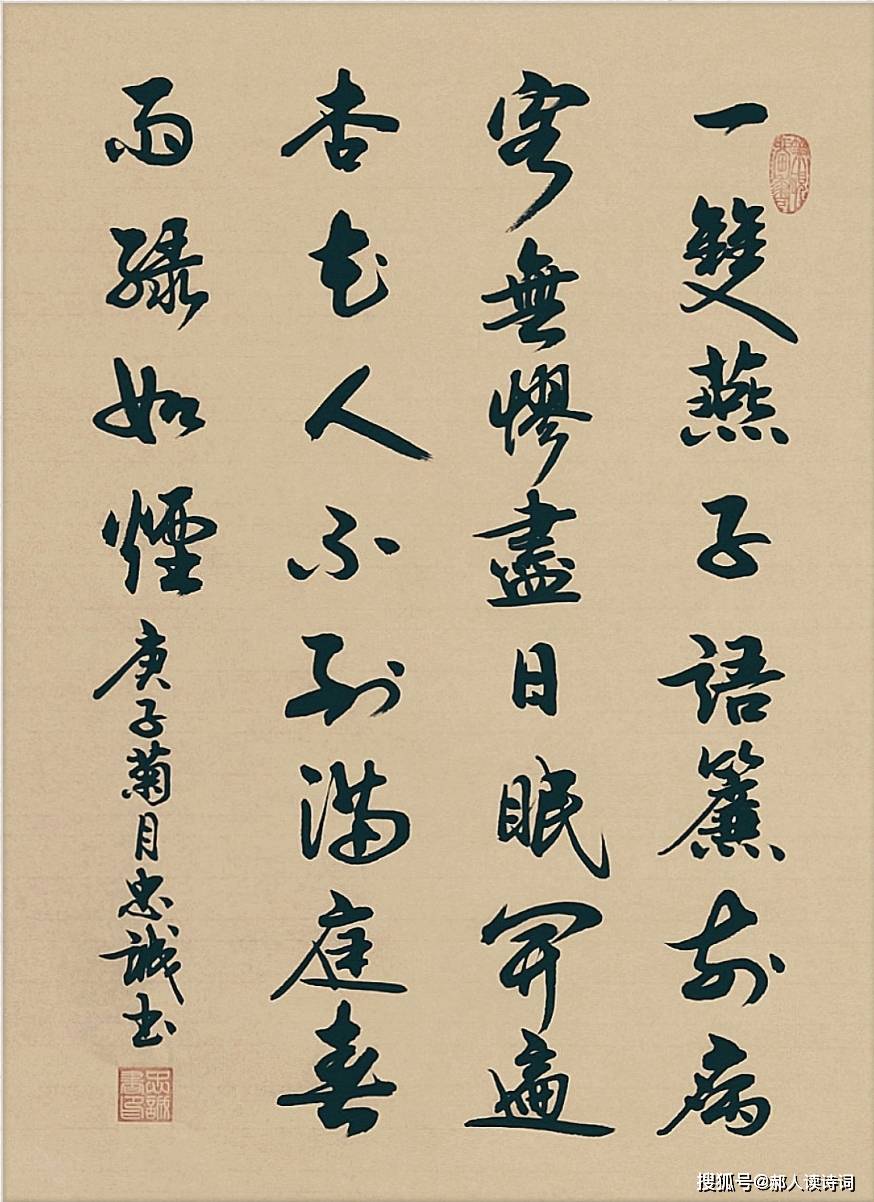 一雙燕子語簾前病
客無憀盡日眠開遍
杏花人不到滿庭春
雨綠如煙
庚子菊月忠誠书
忠誠書印
搜狐号@郝人读诗词